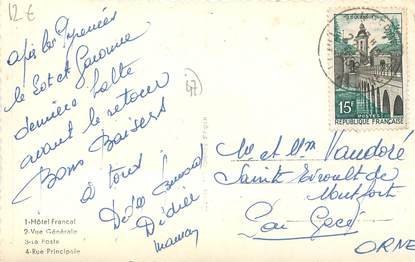 12 €
après les Pyrénées
le Lot et Garonne
dernière halte
avant le retour
Bons Baisers
à tous
Didier
maman
1-Hôtel Francal
2-Vue Générale
3-La Poste
4-Rue Principale
47
15F
POSTES
REPUBLIQUE FRANÇAISE
Mr et Mme Vaudoré
Sainte Evroult de
Montfort
Par Gacé
ORNE